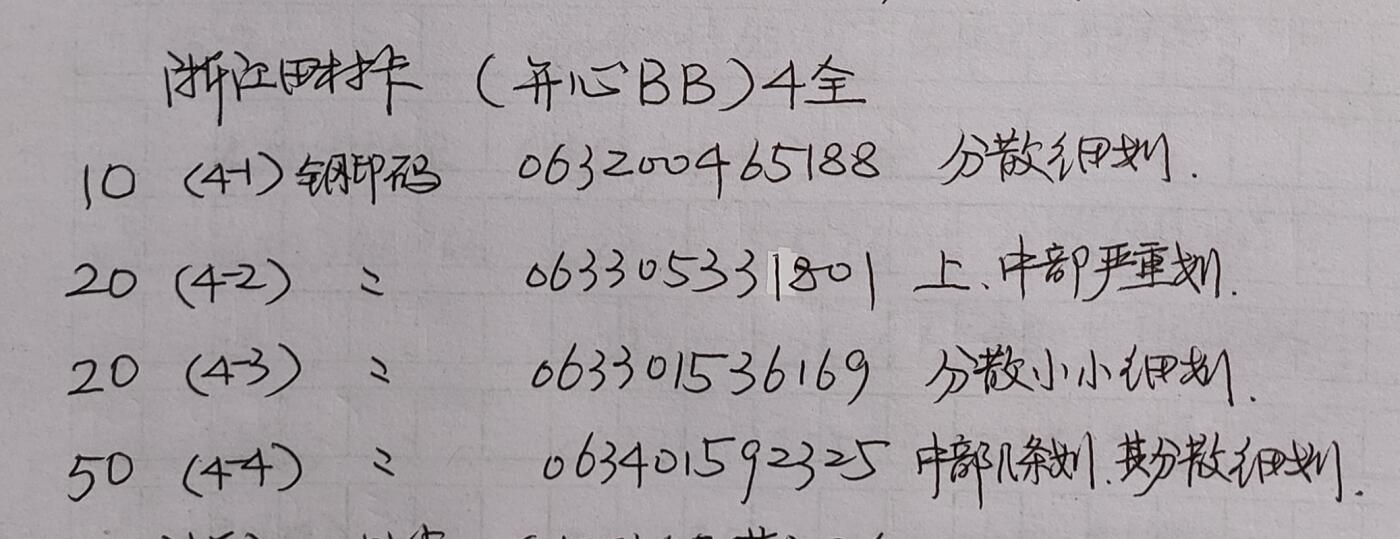 浙江田村卡 (开心BB)4全
10 (4-1)钢印码 063200465188 分散细划.
20 (4-2) 〃 063305331801 上、中部严重划.
20 (4-3) 〃 063301536169 分散小小细划.
50 (4-4) 〃 063401592325 中部几条划.其分散细划.